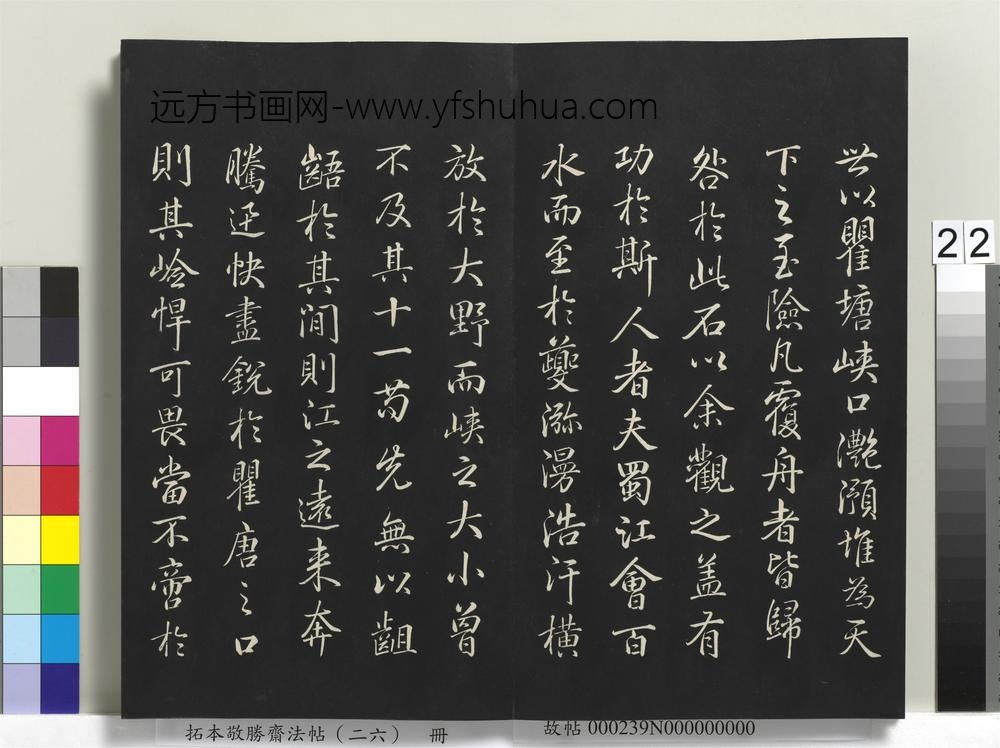 远方书画网-www.yfshuhua.com
世以瞿塘峽口灧澦堆為天
下之至險凡覆舟者皆歸
咎於此石以余觀之蓋有
功於斯人者夫蜀江會百
水而至於夔瀰漫浩汗橫
放於大野而峽之大小曾
不及其十一苟先無以齟
齬於其間則江之遠来奔
騰迅快盡銳於瞿唐之口
則其嶮悍可畏當不啻於
22
拓本敬勝齋法帖（二六） 冊
故帖 000239N000000000